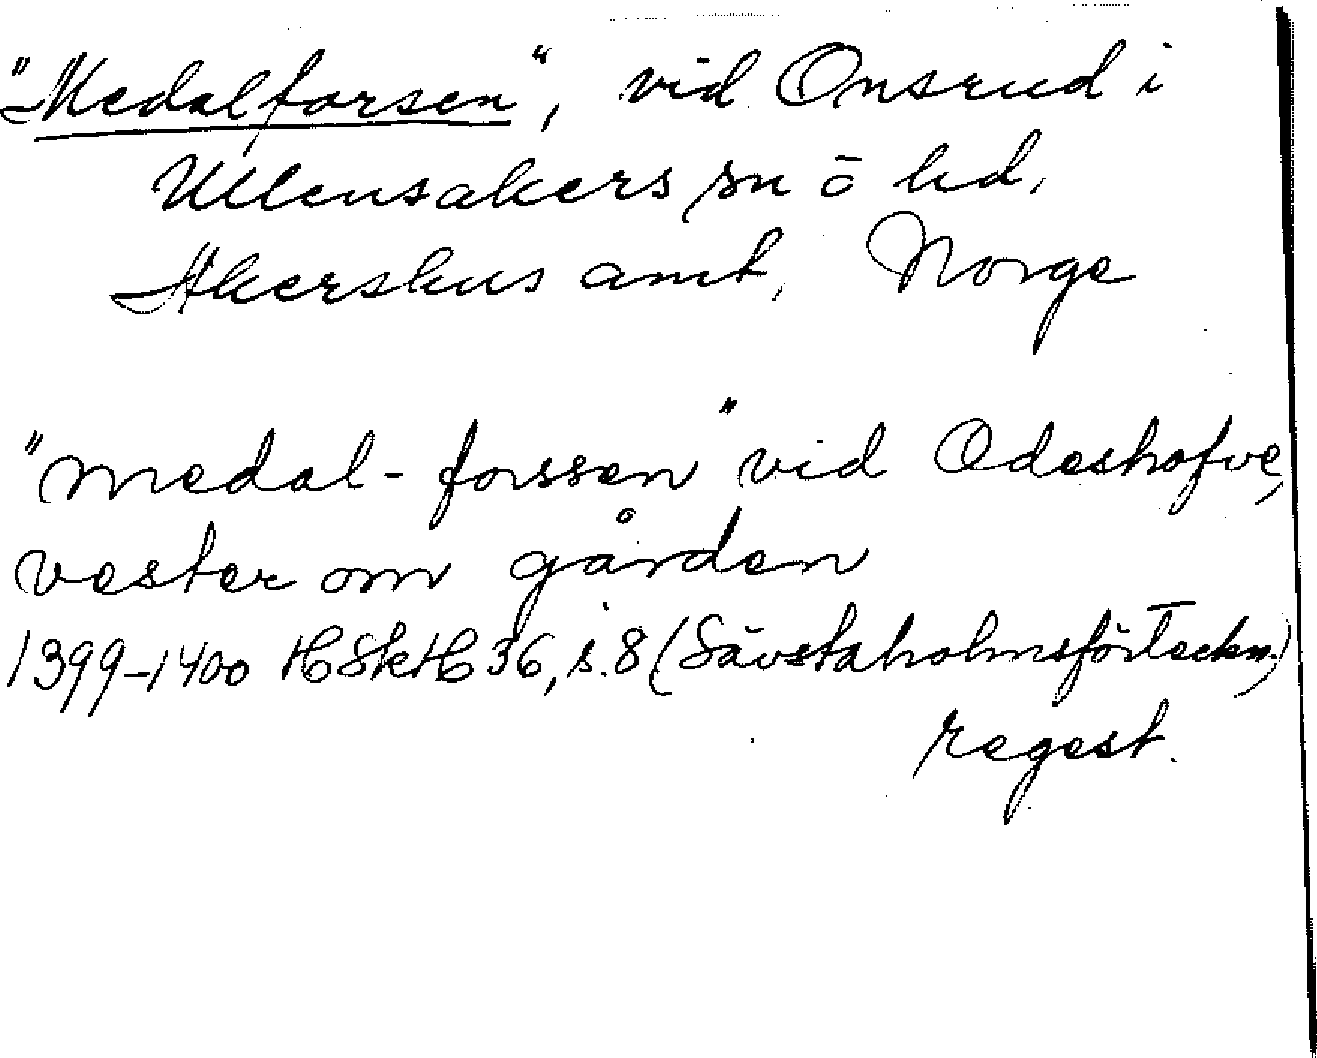 "Medalforsen", vid Onsrud i
Ullensakers sn ō hd,
Akershus amt, Norge
"medal-forssen" vid Odeshofve,
vester om gården
1399-1400 HSkH 36, s. 8 (Sävstaholmsförteckn.)
regest.